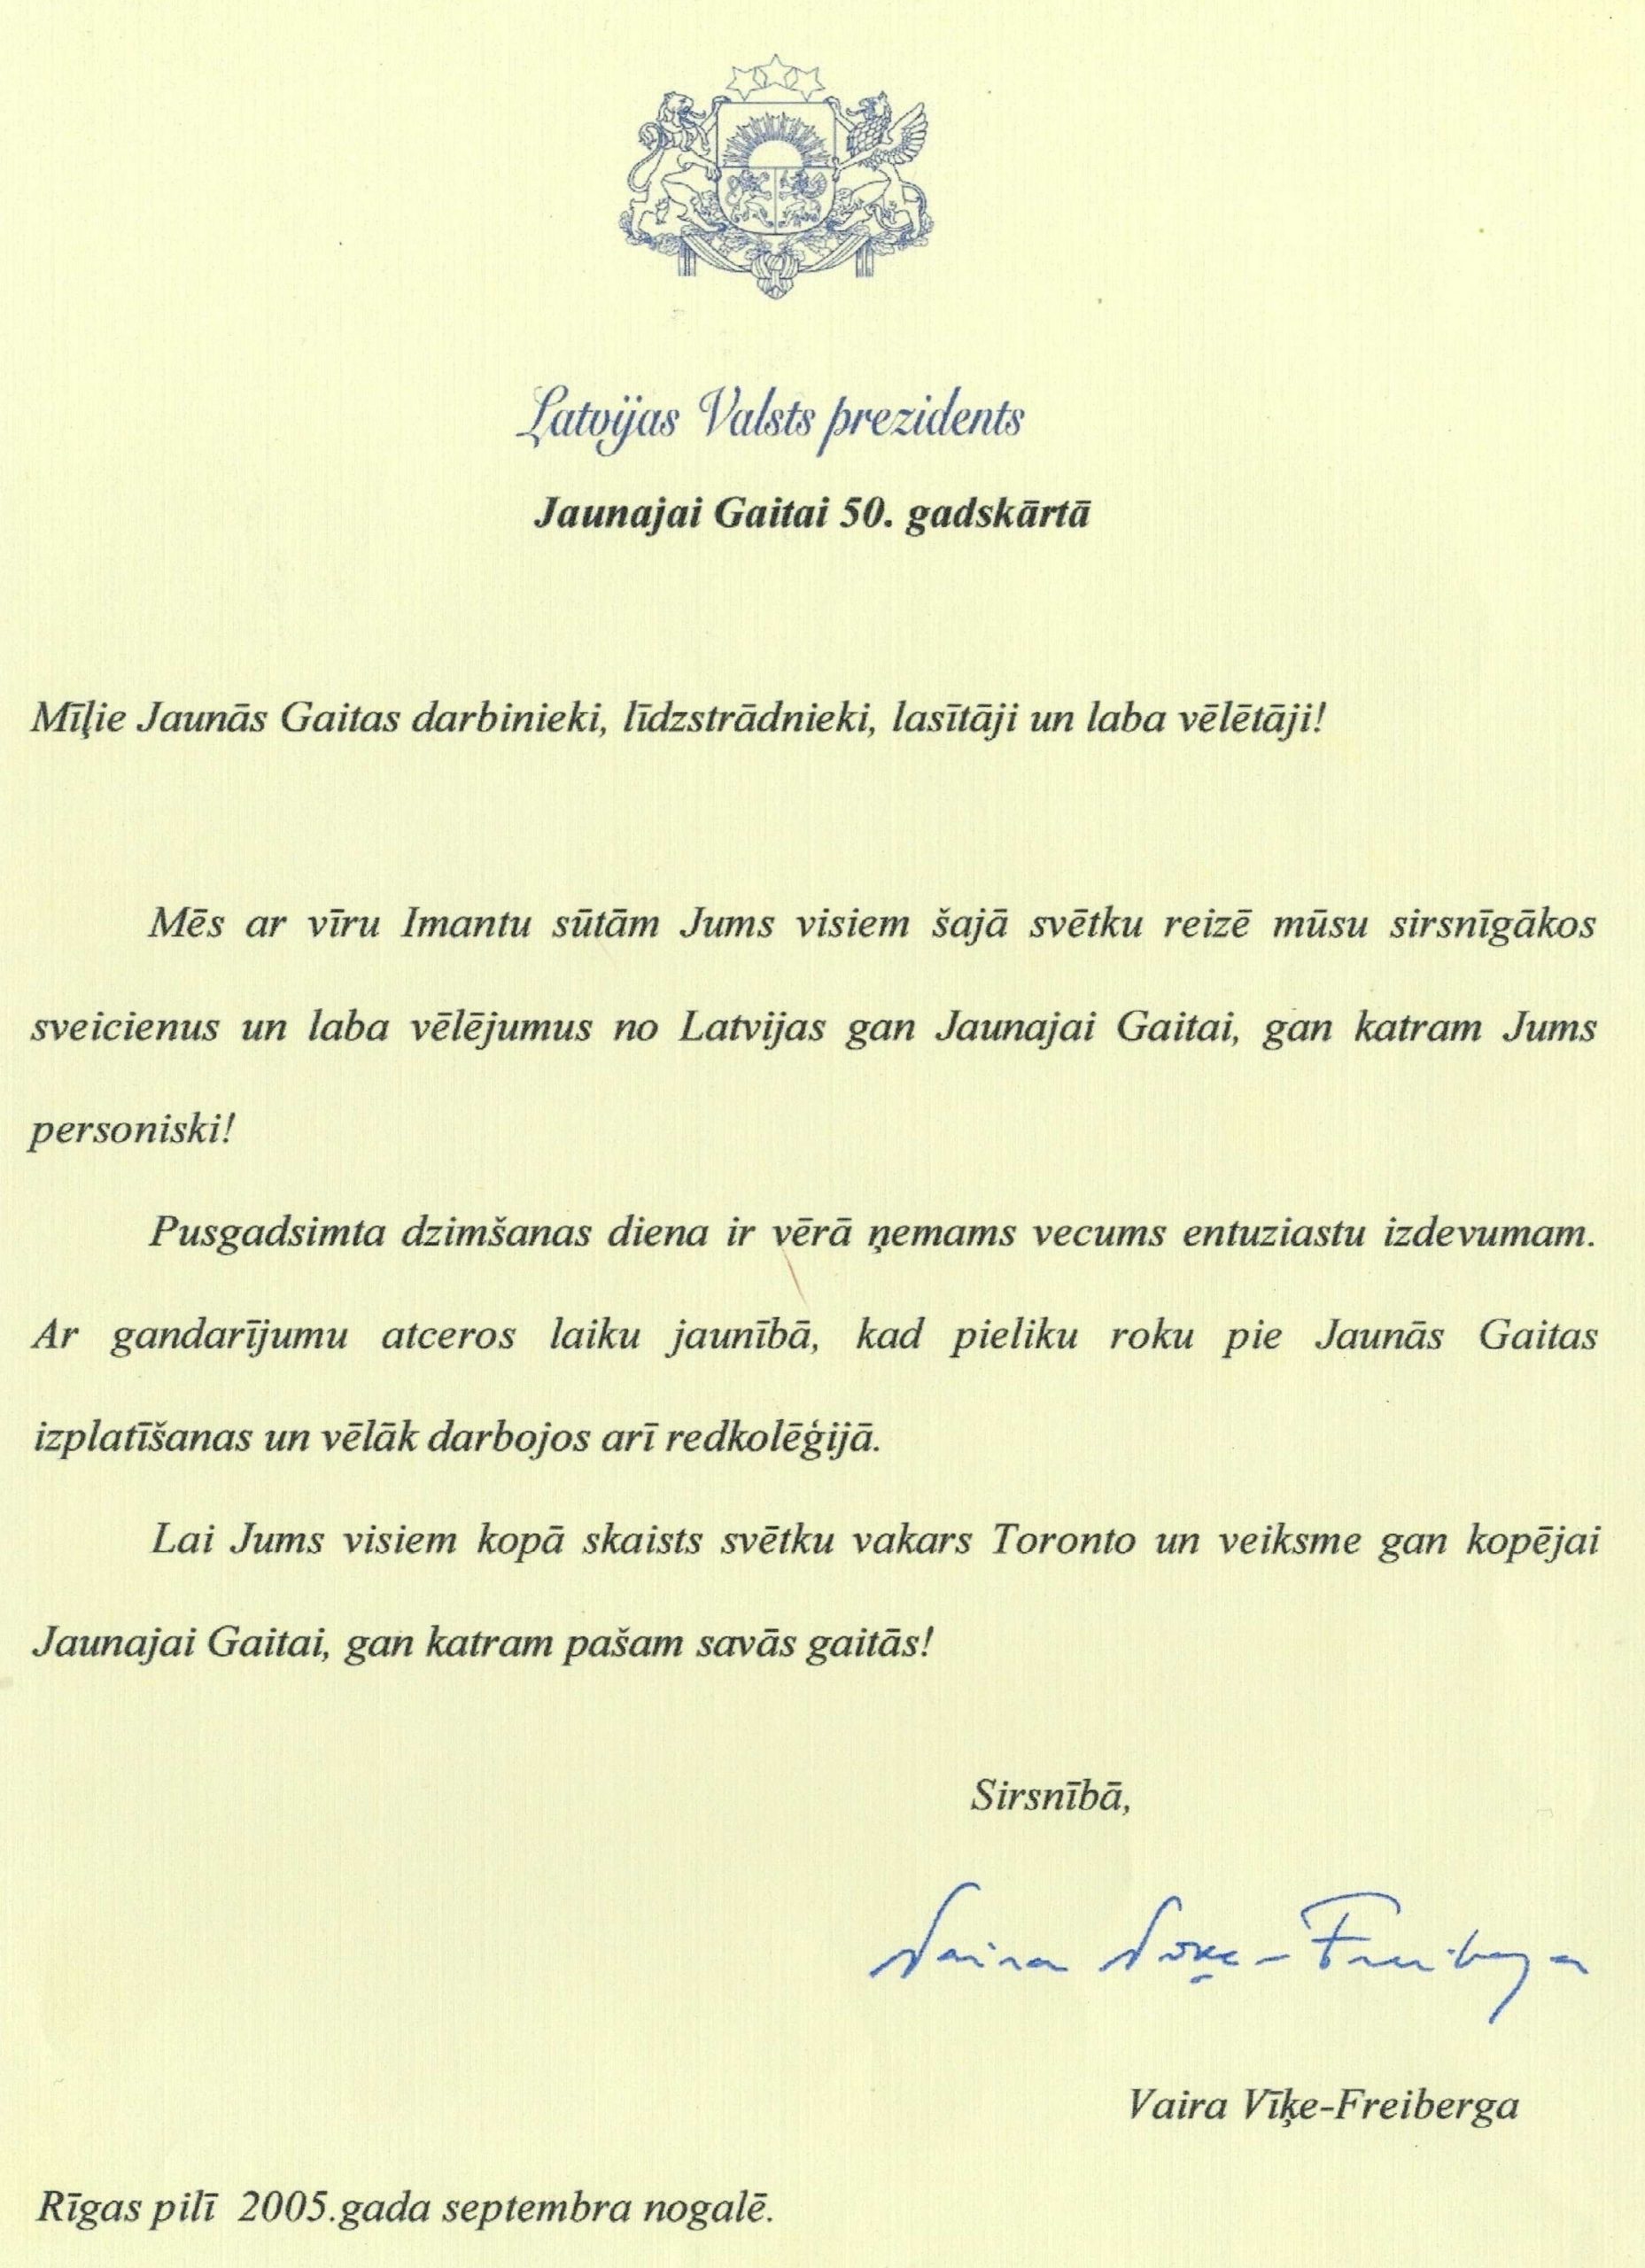 Latvijas Valsts prezidents
Jaunajai Gaitai 50. gadskārtā
Mīļie Jaunās Gaitas darbinieki, līdzstrādnieki, lasītāji un laba vēlētāji!
Mēs ar vīru Imantu sūtām Jums visiem šajā svētku reizē mūsu sirsnīgākos
sveicienus un laba vēlējumus no Latvijas gan Jaunajai Gaitai, gan katram Jums
personiski!
Pusgadsimta dzimšanas diena ir vērā ņemams vecums entuziastu izdevumam.
Ar gandarījumu atceros laiku jaunībā, kad pieliku roku pie Jaunās Gaitas
izplatīšanas un vēlāk darbojos arī redkolēģijā.
Lai Jums visiem kopā skaists svētku vakars Toronto un veiksme gan kopējai
Jaunajai Gaitai, gan katram pašam savās gaitās!
Sirsnībā,
Vaira Vīķe-Freiberga
Vaira Vīķe-Freiberga
Rīgas pilī 2005.gada septembra nogalē.